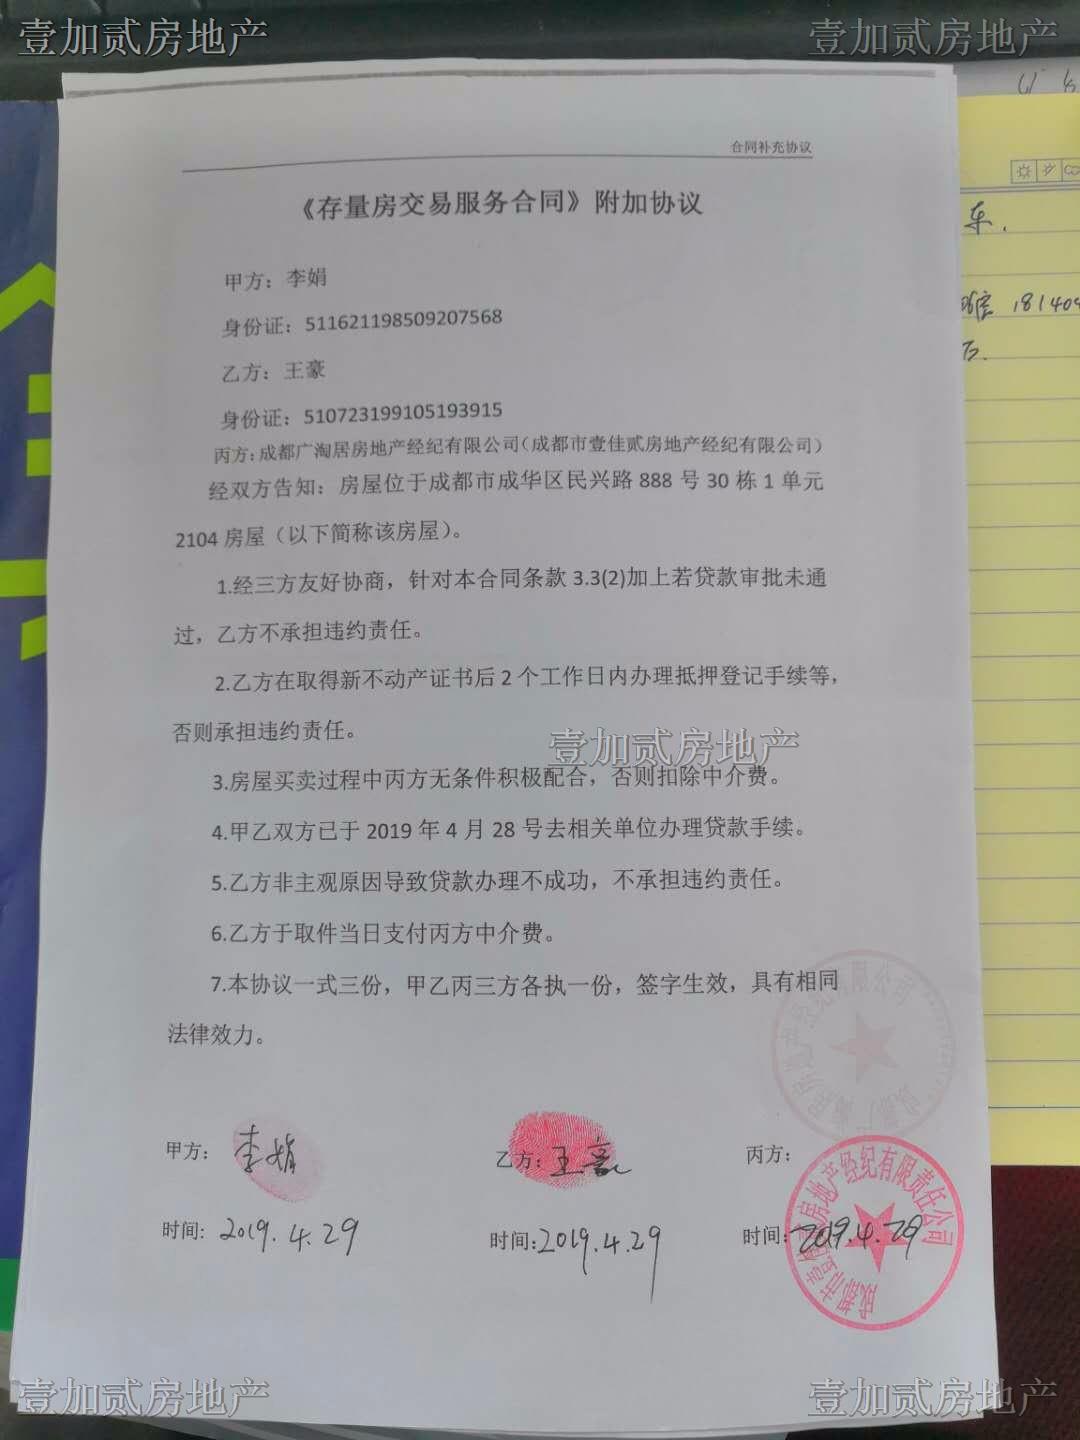 壹加贰房地产
壹加贰房地产
合同补充协议
《存量房交易服务合同》附加协议
甲方：李娟
身份证：511621198509207568
乙方：王豪
身份证：510723199105193915
丙方：成都广淘居房地产经纪有限公司（成都市壹佳贰房地产经纪有限公司）
经双方告知：房屋位于成都市成华区民兴路 888 号 30 栋 1 单元
2104 房屋（以下简称该房屋）。
1.经三方友好协商，针对本合同条款 3.3(2)加上若贷款审批未通
过，乙方不承担违约责任。
2.乙方在取得新不动产证书后 2 个工作日内办理抵押登记手续等，
否则承担违约责任。
壹加贰房地产
3.房屋买卖过程中丙方无条件积极配合，否则扣除中介费。
4.甲乙双方已于 2019 年 4 月 28 号去相关单位办理贷款手续。
5.乙方非主观原因导致贷款办理不成功，不承担违约责任。
6.乙方于取件当日支付丙方中介费。
7.本协议一式三份，甲乙丙三方各执一份，签字生效，具有相同
法律效力。
甲方：李娟
乙方：王豪
丙方：
成都市壹佳贰房地产经纪有限责任公司
时间：2019.4.29
时间：2019.4.29
时间：2019.4.29
车.
181404
壹加贰房地产
壹加贰房地产